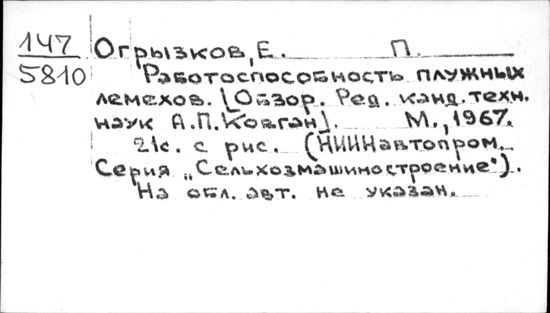 147
5810
Огрызков, Е. П.
Работоспособность плужных
лемехов. [Обзор. Ред. канд. техн.
наук А.П. Ковган]. М., 1967.
21с. с рис. (НИИНавтопром.
Серия „Сельхозмашиностроение").
На обл. авт. не указан.